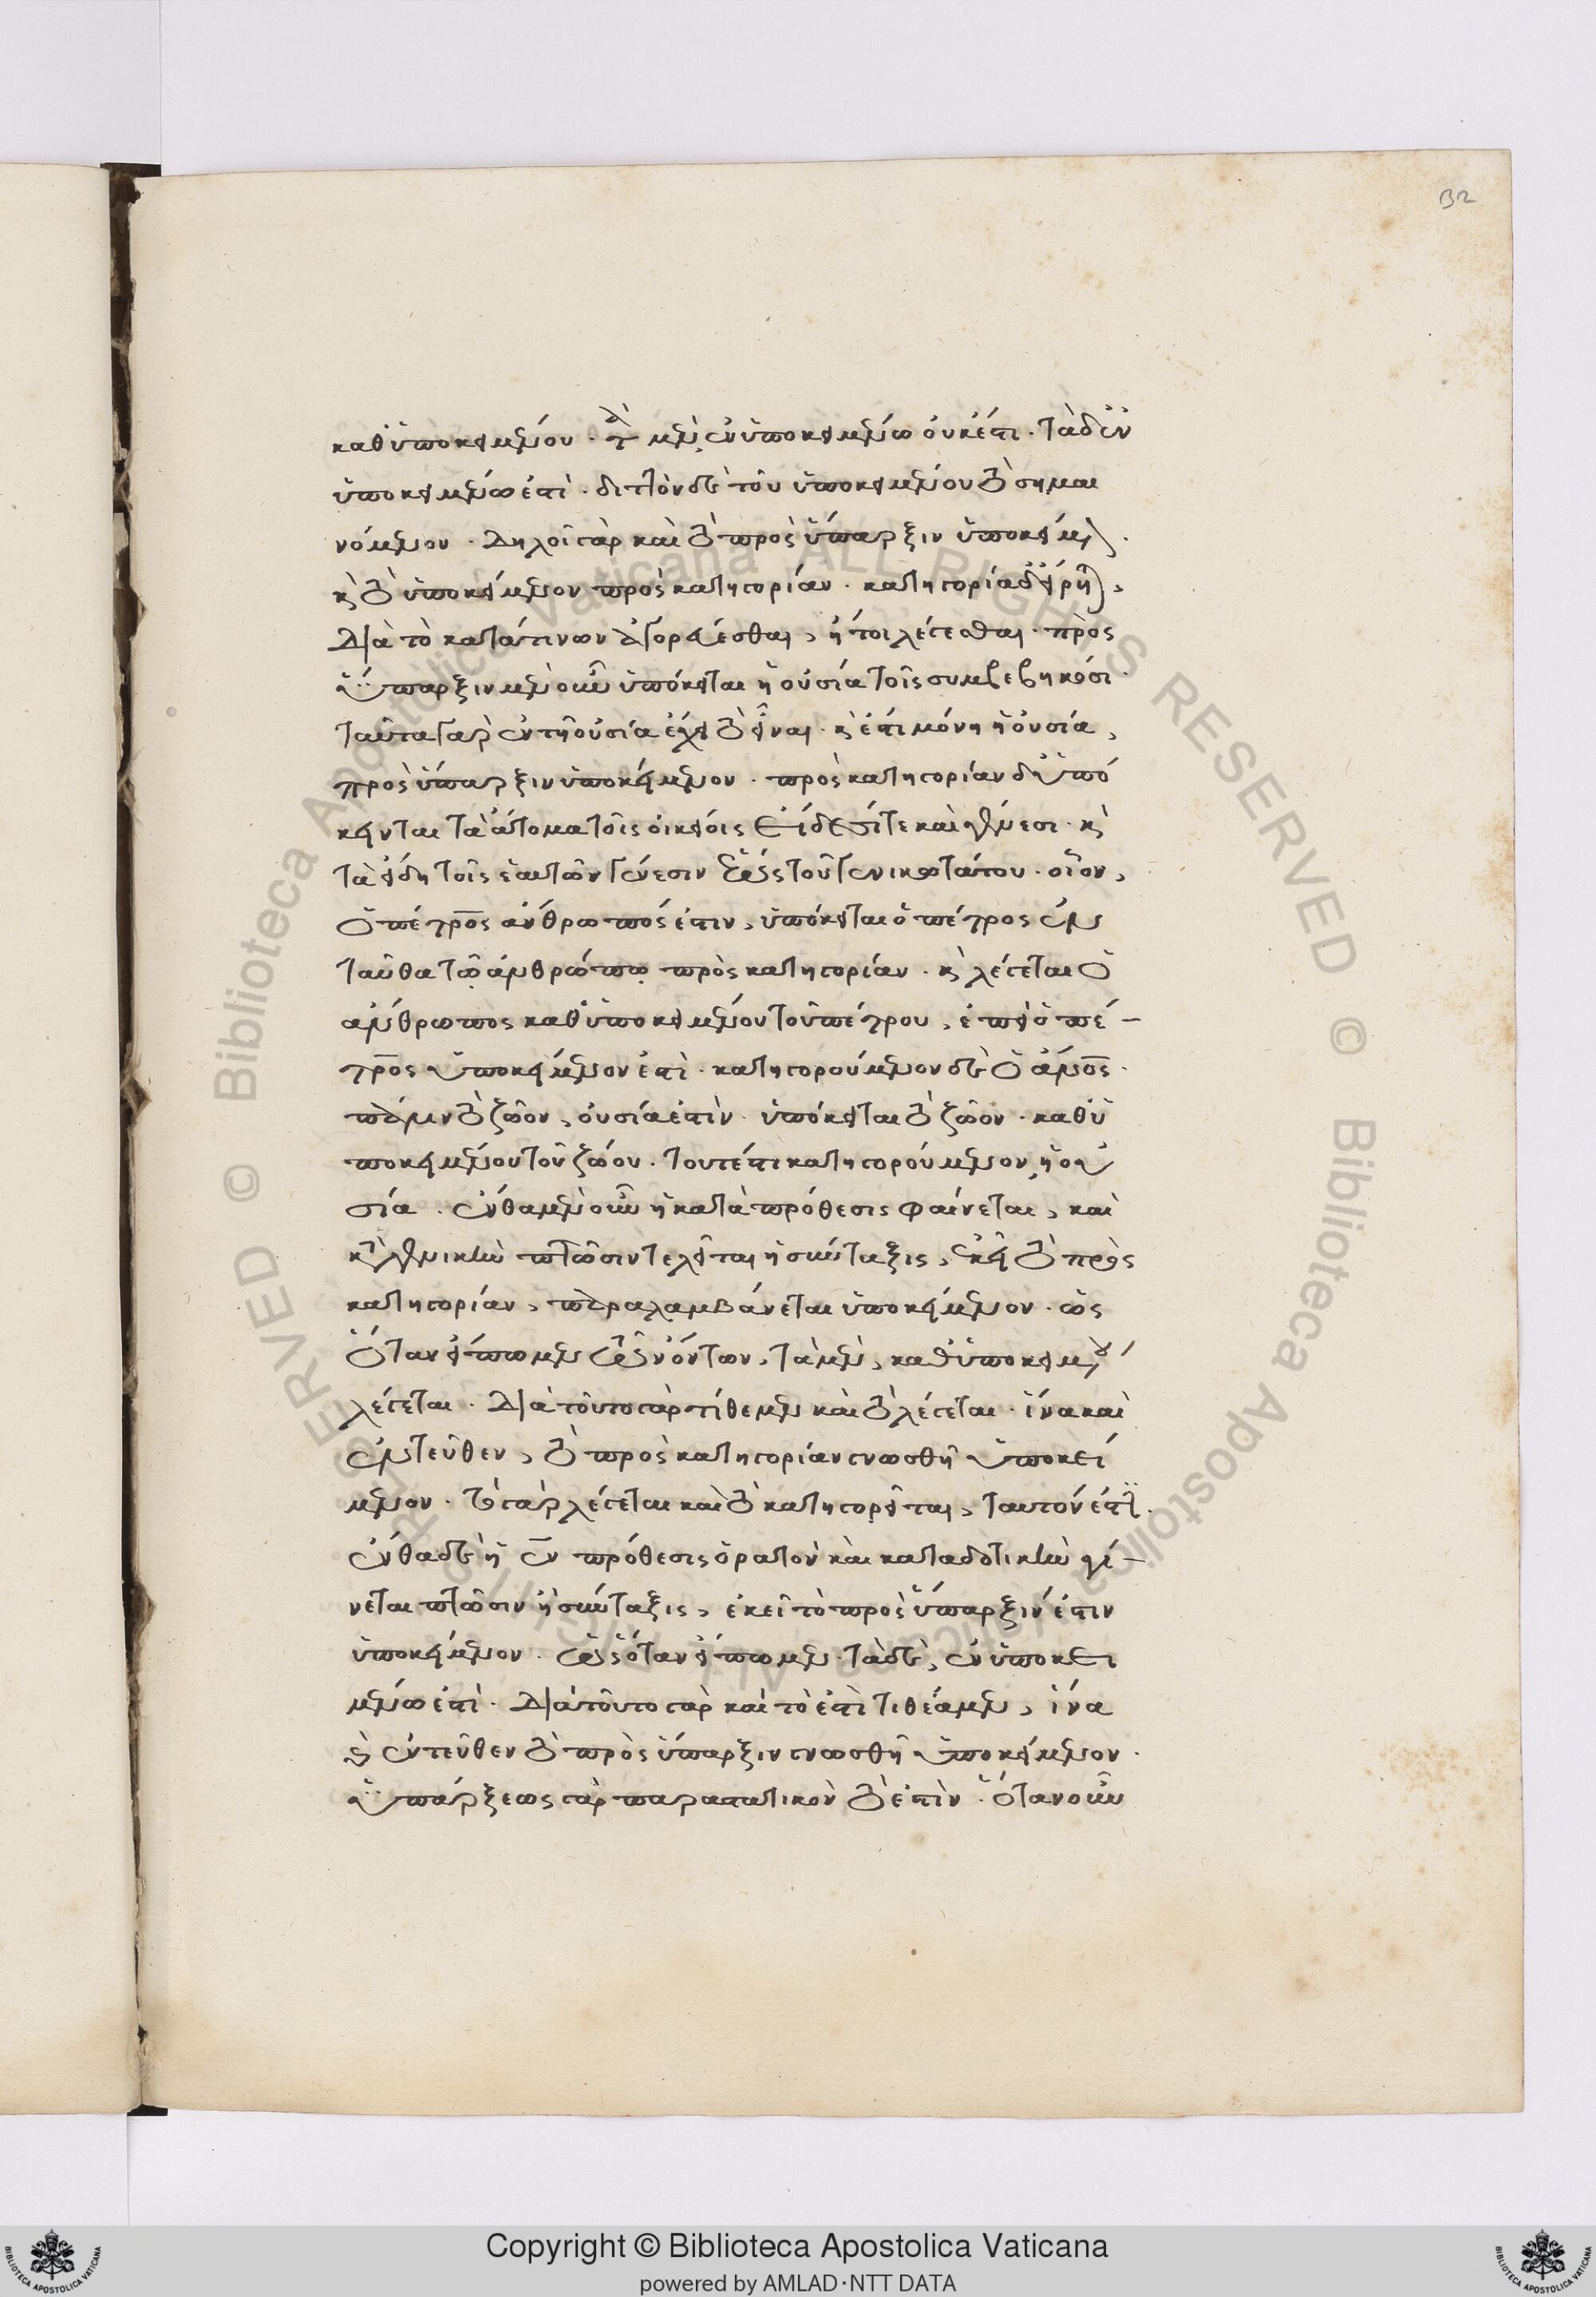 32
καθ ὑποκειμένου. τὰ μὲν, ἐν ὑποκειμένω οὐκέστι. τὰ δ ἐν
ὑποκειμένω ἐστὶ. διττὸν δὲ τοῦ ὑποκειμένου τὸ σημαι
νόμενον. δηλοῖ γὰρ καὶ τὸ πρὸς ὕπαρξιν ὑποκείμενον.
κὶ τὸ ὑποκείμενον πρὸς κατηγορίαν. κατηγορία δ εἴρηται,
διὰ τὸ κατά τινων ἀγορεύεσθαι, ἤτοι λέγεσθαι. πρὸς
ὕπαρξιν μὲν οὖν ὑπόκειται ἡ οὐσία τοῖς συμβεβηκόσι.
ταῦτα γὰρ ἐν τῆ οὐσία ἔχει τὸ εἶναι. κὶ ἔστι μόνη ἡ οὐσία,
πρὸς ὕπαρξιν ὑποκείμενον. πρὸς κατηγορίαν δ ὑπό
κεινται τὰ ἄτομα τοῖς οἰκείοις εἴδεσί τε καὶ γένεσι. κὶ
τὰ εἴδη τοῖς ἑαυτῶν γένεσιν ἕως τοῦ γενικωτάτου. οἷον,
ὁ πέτρος ἄνθρωπός ἐστιν, ὑπόκειται ὁ πέτρος ἐν
ταῦθα τῷ ἀνθρώπῳ πρὸς κατηγορίαν. κὶ λέγεται ὁ
ἄνθρωπος καθ ὑποκειμένου τοῦ πέτρου, ἐπεὶ ὁ πέ-
τρος ὑποκείμενον ἐστὶ. κατηγορούμενον δὲ ὁ ἄνος.
πάλιν τὸ ζῶον, οὐσία ἐστὶν. ὑπόκειται τὸ ζῶον. καθ ὑ
ποκειμένου τοῦ ζώου. τουτέστι κατηγορούμενον, ἡ οὐ
σία. ἔνθα μὲν οὖν ἡ κατὰ πρόθεσις φαίνεται, καὶ
κατὰ γενικὴν πτῶσιν τελεῖται ἡ σύνταξις, ἐκεῖ τὸ πρὸς
κατηγορίαν, παραλαμβάνεται ὑποκείμενον. ὡς
ὅταν εἴπωμεν τῶν ὄντων, τὰ μὲν, καθ ὑποκειμένου
λέγεται. διὰ τοῦτο γὰρ τίθεμεν καὶ τὸ λέγεται. ἵνα καὶ
ἐντεῦθεν, τὸ πρὸς κατηγορίαν γνωσθῆ ὑποκεί
μενον. τὸ γὰρ λέγεται καὶ τὸ κατηγορεῖται, ταυτόν ἐστι.
ἔνθα δὲ ἡ ἐν πρόθεσις ὁρᾶται καὶ κατὰ δοτικὴν γί-
νεται πτῶσιν ἡ σύνταξις, ἐκεῖ τὸ πρὸς ὕπαρξίν ἐστιν
ὑποκείμενον. ὡς ὅταν εἴπωμεν. τὰ δὲ, ἐν ὑποκει
μένω ἐστὶ. διὰ τοῦτο γὰρ καὶ τὸ ἐστὶ τιθέαμεν, ἵνα
κὶ ἐντεῦθεν τὸ πρὸς ὕπαρξιν γνωσθῆ ὑποκείμενον.
ὑπάρξεως γὰρ παραστατικὸν τὸ ἐστὶν. ὅταν οὖν
© Biblioteca Apostolica Vaticana ALL RIGHTS RESERVED
Copyright © Biblioteca Apostolica Vaticana
powered by AMLAD·NTT DATA